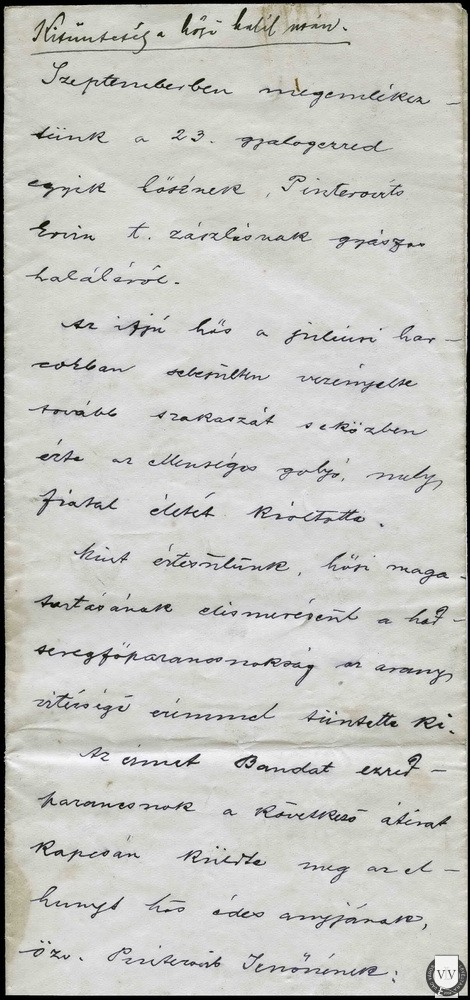 Kitüntetés a hősi halál után.
Szeptemberben megemlékez-
tünk a 23. gyalogezred
egyik hősének, Pinterovits
Ervin t. zászlósnak gyászos
haláláról.
Az ifjú hős a juliusi har-
cokban sebesülten vezényelte
tovább szakaszát s eközben
érte az ellenséges golyó, mely
fiatal életét kioltotta.
Mint értesülünk, hősi maga-
tartásának elismeréseül a had-
seregfőparancsnokság az arany
vitézségi éremmel tüntette ki.
Az érmet Bandat ezred-
parancsnok a következő átirat
kapcsán küldte meg az el-
hunyt hős édes anyjának,
özv. Pinterovits Jenőnének:
VV